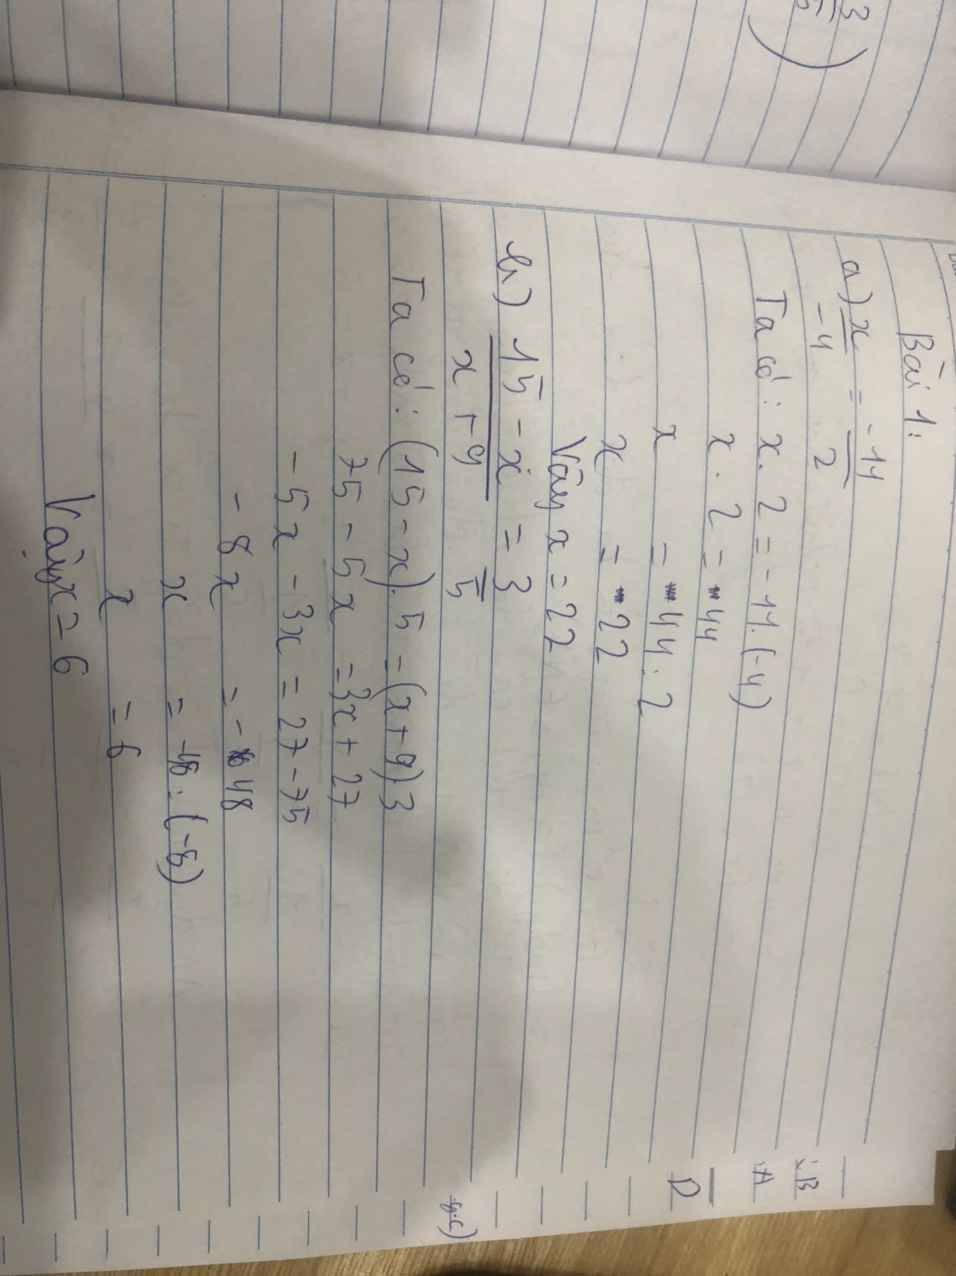 3
5
)
Bài 1:
a) x/-4 = -11/2
Ta có: x. 2 = -11.(-4)
x . 2 = 44
x = 44 : 2
x = 22
Vậy x = 22
b) 15 - x/x + 9 = 3/5
Ta có: (15 - x).5 = (x + 9)3
75 - 5x = 3x + 27
- 5x - 3x = 27 - 75
- 8x = - 48
x = -48 : (-8)
x = 6
Vậy x = 6
B
A
D